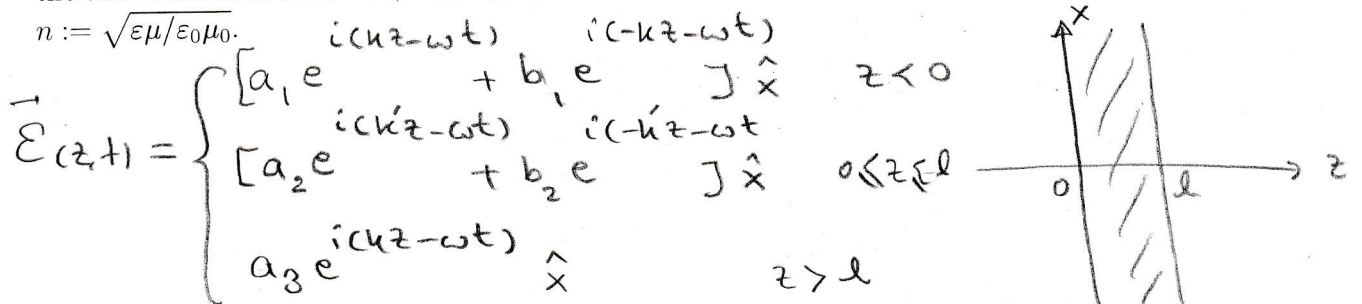 n := √εμ/ε₀μ₀.
[a₁e^{i(kz-ωt)} + b₁e^{i(-kz-ωt)}] x̂ z < 0
ℰ⃗(z,t) = { [a₂e^{i(k'z-ωt)} + b₂e^{i(-k'z-ωt} ] x̂ 0≤z≤l
a₃e^{i(kz-ωt)} x̂ z > l
x
0 l z